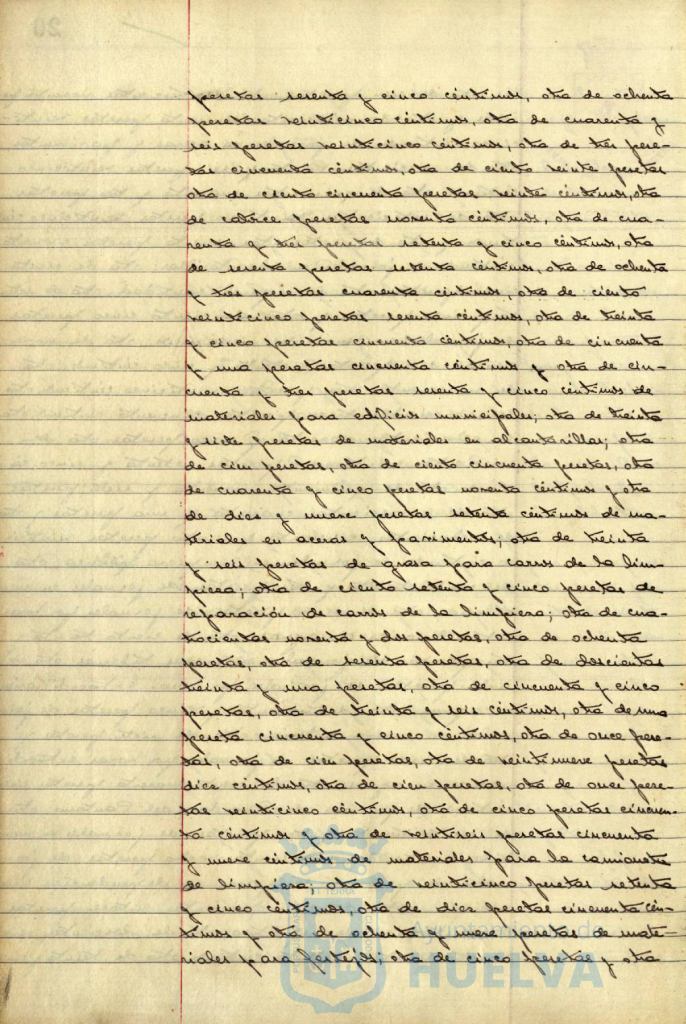 pesetas sesenta y cinco céntimos, otra de ochenta
pesetas veinticinco céntimos, otra de cuarenta y
seis pesetas veinticinco céntimos, otra de tres pese-
tas cincuenta céntimos, otra de ciento veinte pesetas
otra de ciento cincuenta pesetas veinte céntimos, otra
de catorce pesetas noventa céntimos, otra de cua-
renta y tres pesetas setenta y cinco céntimos, otra
de sesenta pesetas setenta céntimos, otra de ochenta
y tres pesetas cuarenta céntimos, otra de ciento
veinticinco pesetas sesenta céntimos, otra de treinta
y cinco pesetas cincuenta céntimos, otra de cincuenta
y una pesetas cincuenta céntimos y otra de cin-
cuenta y tres pesetas sesenta y cinco céntimos de
materiales para edificios municipales; otra de treinta
y siete pesetas de materiales en alcantarillas; otra
de cien pesetas, otra de ciento cincuenta pesetas, otra
de cuarenta y cinco pesetas noventa céntimos y otra
de diez y nueve pesetas setenta céntimos de ma-
teriales en aceras y pavimentos; otra de treinta
y seis pesetas de grasa para carros de la lim-
pieza; otra de ciento setenta y cinco pesetas de
reparación de carros de la limpieza; otra de cua-
trocientas noventa y dos pesetas, otra de ochenta
pesetas, otra de sesenta pesetas, otra de doscientas
treinta y una pesetas, otra de cincuenta y cinco
pesetas, otra de treinta y seis céntimos, otra de una
peseta cincuenta y cinco céntimos, otra de once pese-
tas, otra de cien pesetas, otra de veintinueve pesetas
diez céntimos, otra de cien pesetas, otra de once pese-
tas veinticinco céntimos, otra de cinco pesetas cincuen-
ta céntimos y otra de veintiseis pesetas cincuenta
y nueve céntimos de materiales para la camioneta
de limpieza; otra de veinticinco pesetas setenta
y cinco céntimos, otra de diez pesetas cincuenta cén-
timos y otra de ochenta y nueve pesetas de mate-
riales para festejos; otra de cinco pesetas y otra
HUELVA